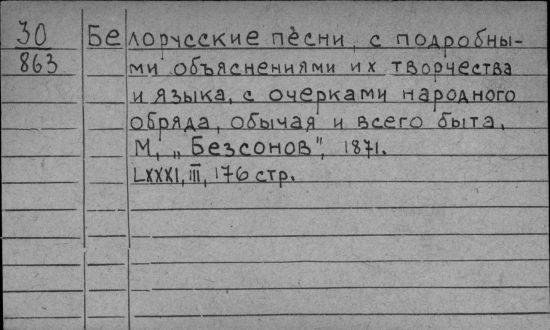 30 Белорусские песни, с подробны-
863 ми объяснениями их творчества
и языка, с очерками народного
обряда, обычая и всего быта,
М, „Безсонов", 1871.
LXXXI, III, 176 стр.